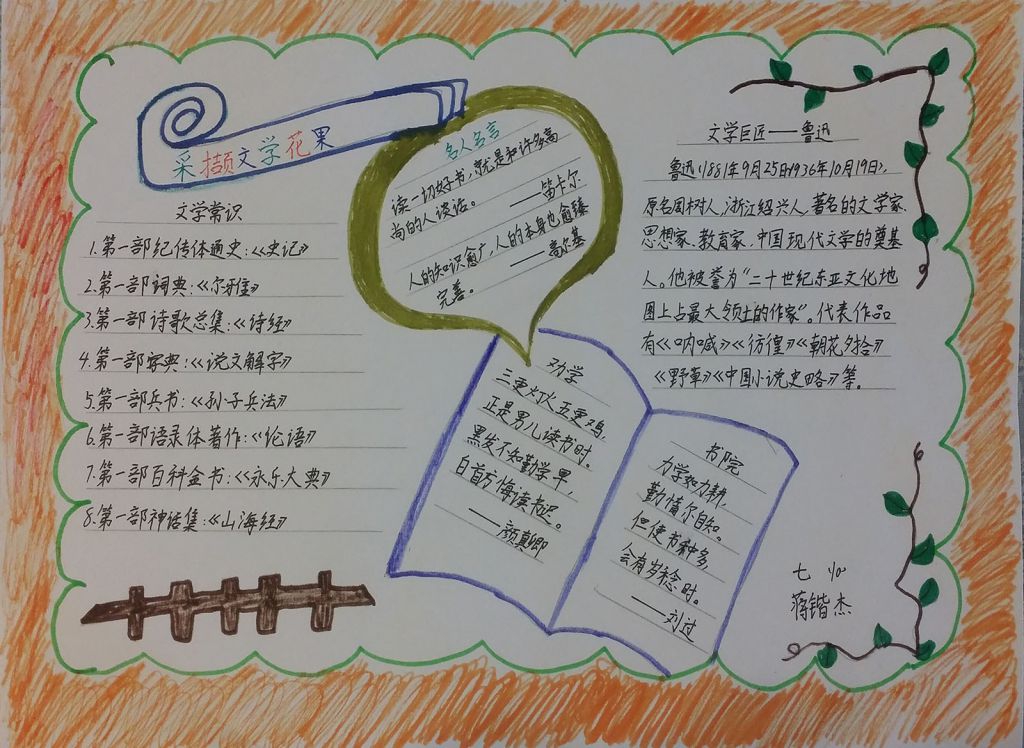 采撷文学花果
文学常识
1.第一部纪传体通史:《史记》
2.第一部词典:《尔雅》
3.第一部诗歌总集:《诗经》
4.第一部字典:《说文解字》
5.第一部兵书:《孙子兵法》
6.第一部语录体著作:《论语》
7.第一部百科全书:《永乐大典》
8.第一部神话集:《山海经》
名人名言
读一切好书,就是和许多高
尚的人谈话。——笛卡尔
人的知识愈广,人的本身也愈臻
完善。——高尔基
劝学
三更灯火五更鸡,
正是男儿读书时。
黑发不知勤学早,
白首方悔读书迟。
——颜真卿
书院
力学如力耕,
勤惰尔自知。
但使书种多,
会有岁稔时。
——刘过
文学巨匠——鲁迅
鲁迅(1881年9月25日-1936年10月19日),
原名周树人,浙江绍兴人,著名的文学家、
思想家、教育家,中国现代文学的奠基
人。他被誉为“二十世纪东亚文化地
图上占最大领土的作家”。代表作品
有《呐喊》《彷徨》《朝花夕拾》
《野草》《中国小说史略》等。
蒋锴杰